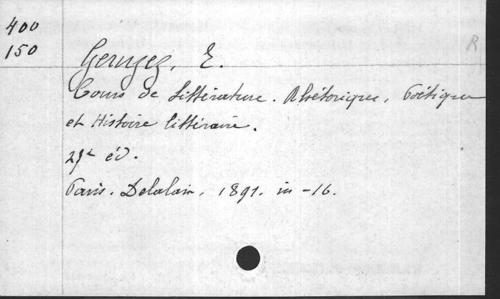 400
150
Geruzez, E. R
Cours de Littérature. Rhétorique, Poétique
et Histoire littéraire.
éd.
Paris. Delalain. 1891. in-16.